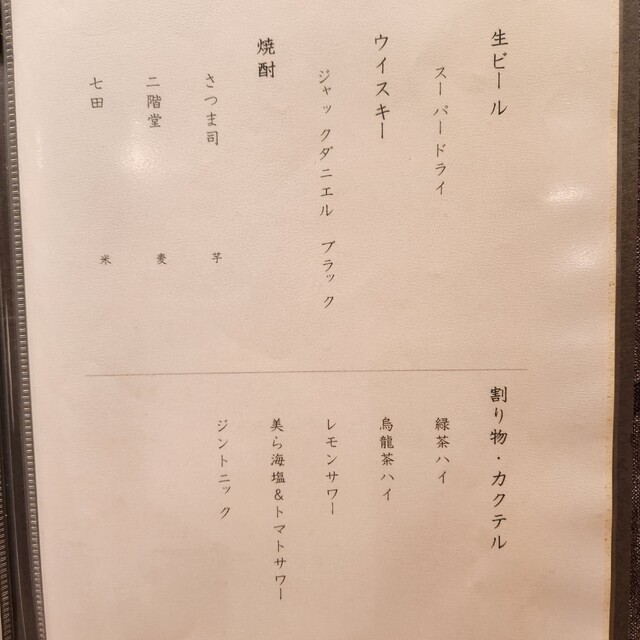 生ビール
スーパードライ
ウイスキー
ジャックダニエル ブラック
焼酎
さつま司 芋
二階堂 麦
七田 米
割り物・カクテル
緑茶ハイ
烏龍茶ハイ
レモンサワー
美ら海塩&トマトサワー
ジントニック